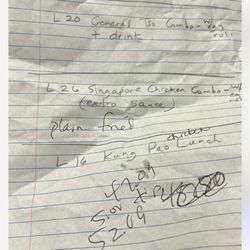 L 20 General Tso Combo - w/ egg roll
+ drink
L 26 Singapore Chicken Combo - w/
(extra sauce)
plain fried
chicken
L 16 Kung Pao Lunch
52.09